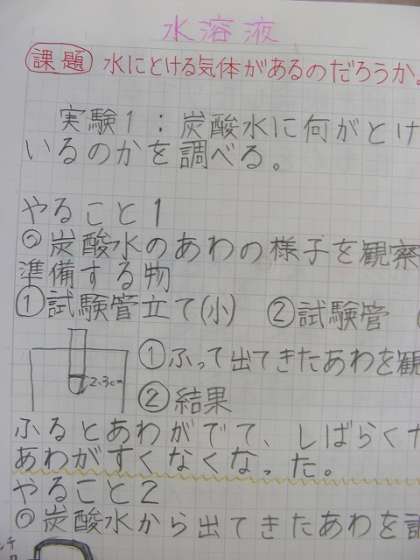 水溶液
課題 水にとける気体があるのだろうか。
実験1：炭酸水に何がとけ
いるのかを調べる。
やること1
○炭酸水のあわの様子を観察
準備する物
①試験管立て(小) ②試験管 (
2.3cm
①ふって出てきたあわを観
②結果
ふるとあわがでて、しばらくた
あわがすくなくなった。
やること2
○炭酸水から出てきたあわを